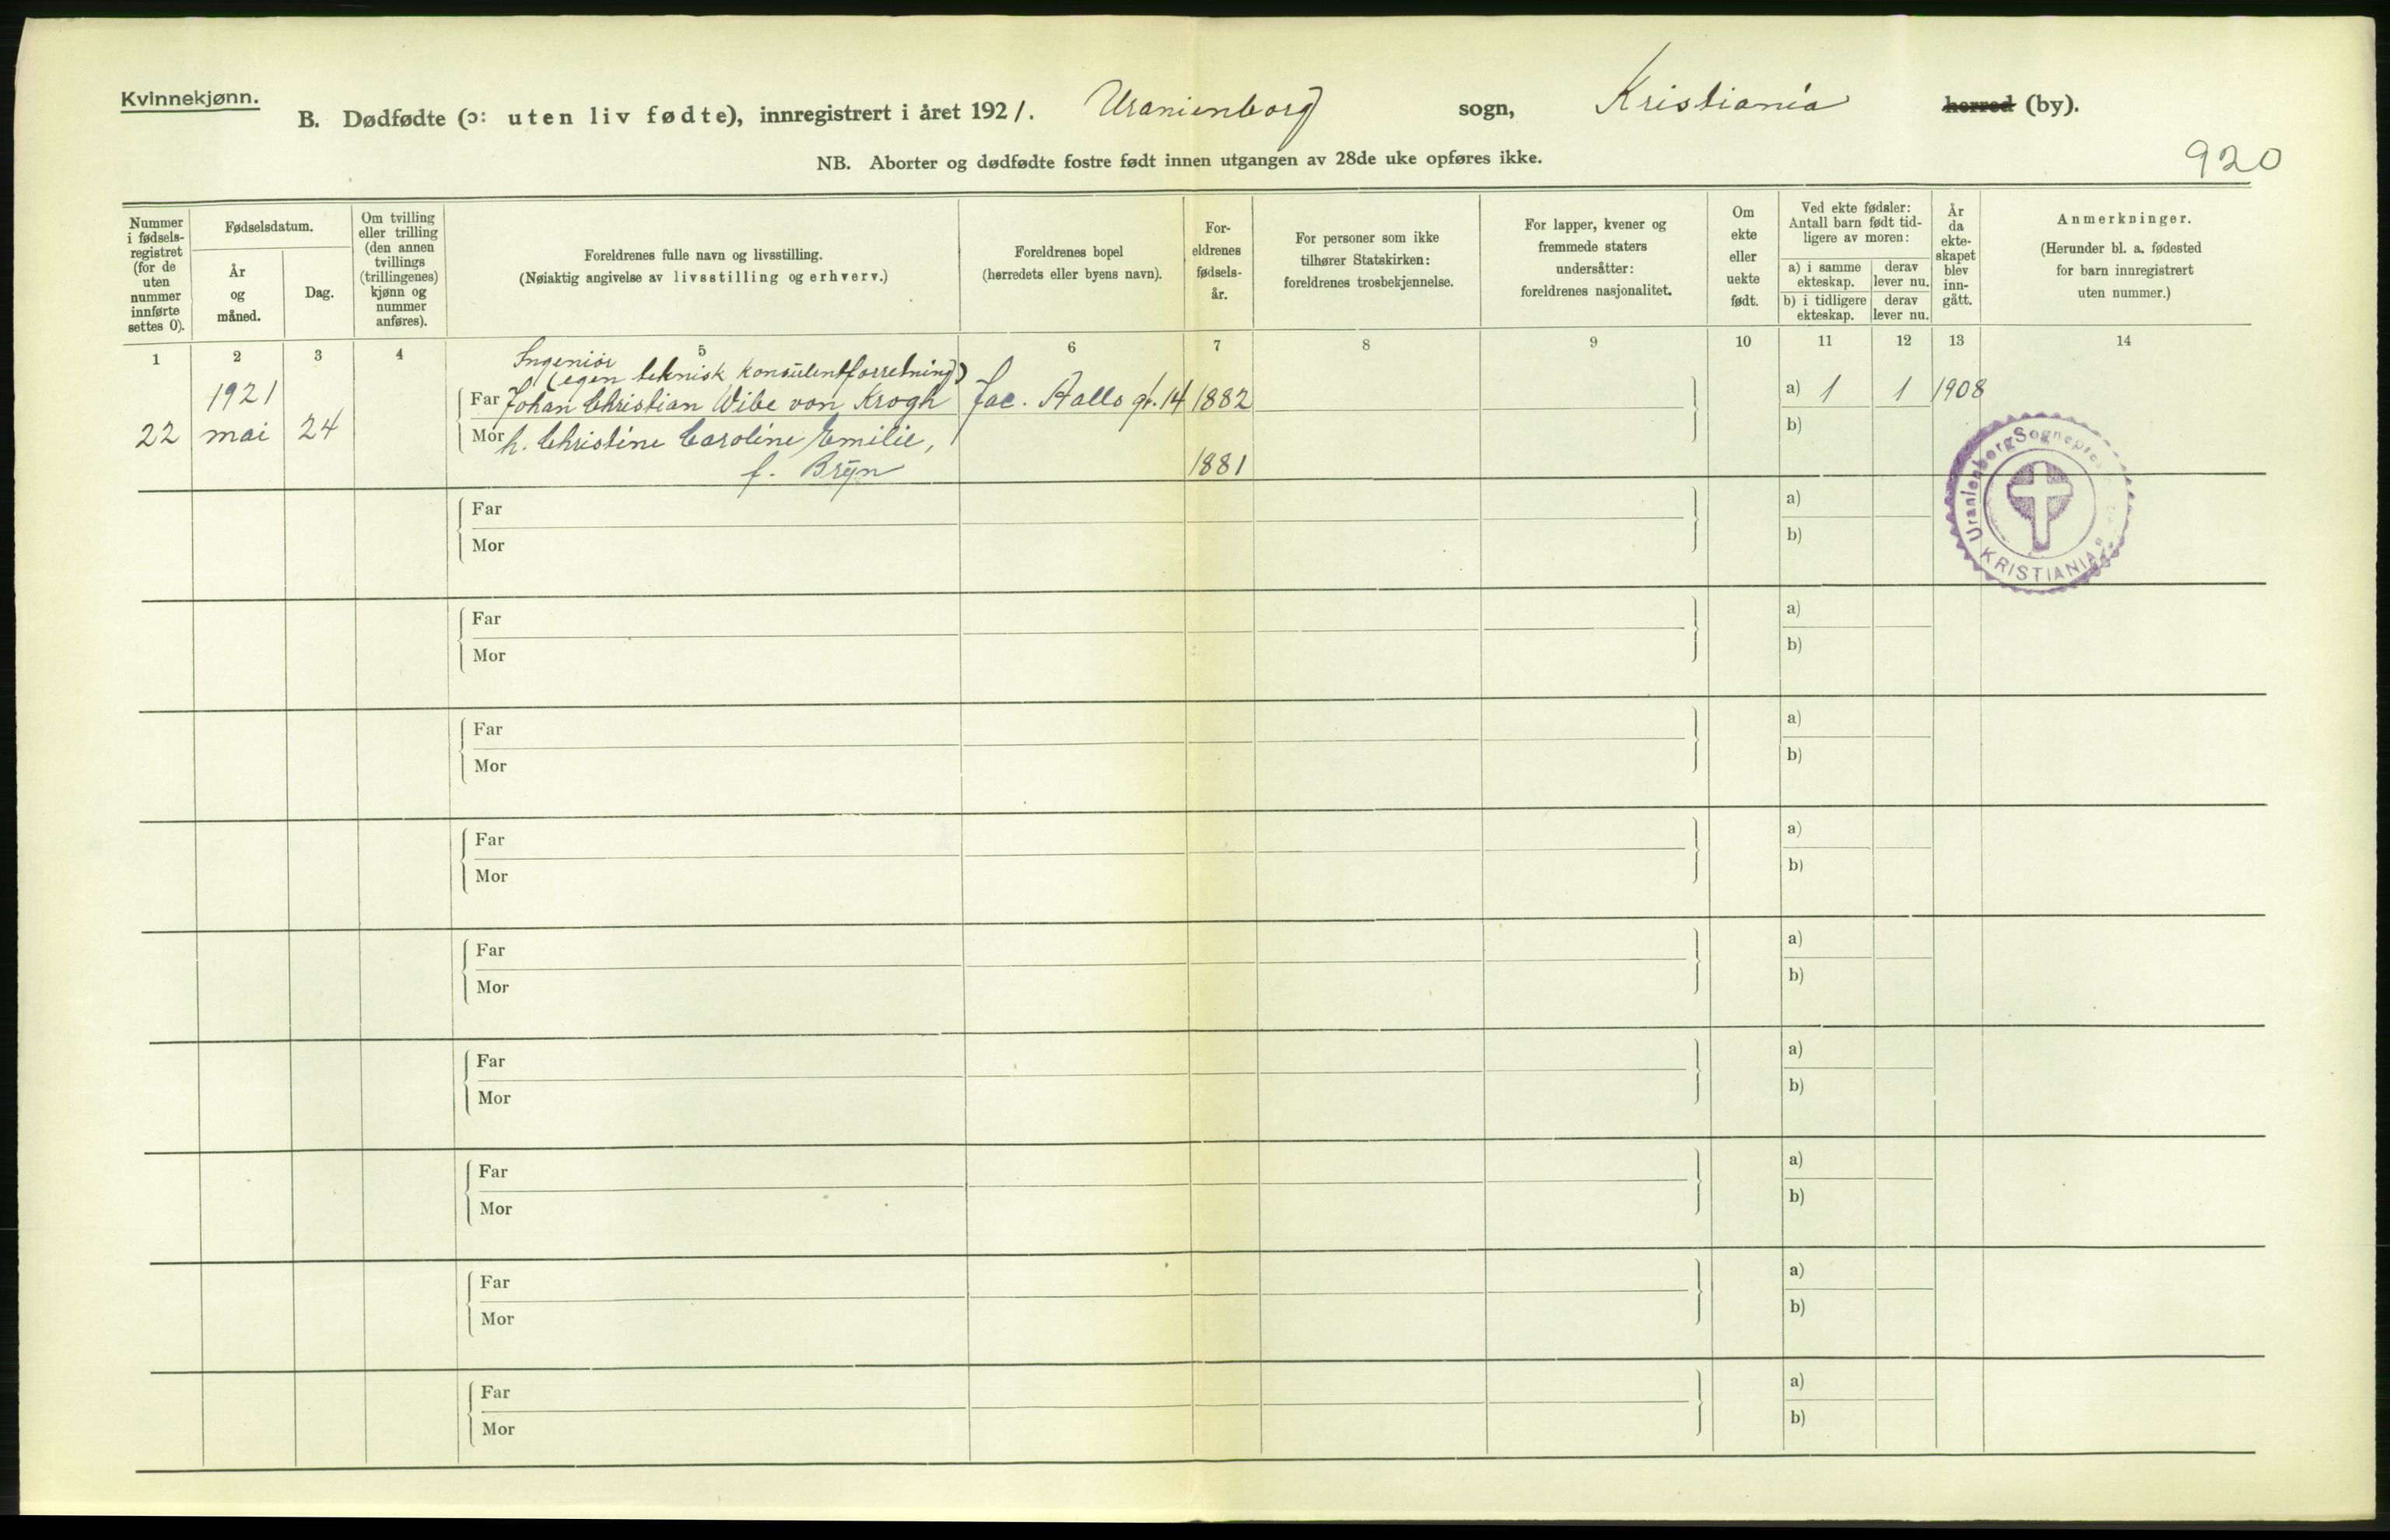 Kvinnekjønn.
B. Dødfødte (ɔ: uten liv fødte), innregistrert i året 1921. Uranienborg sogn, Kristiania herred (by).
NB. Aborter og dødfødte fostre født innen utgangen av 28de uke opføres ikke.
920
Nummer i fødsels-registret (for de uten nummer innførte settes 0).
Fødselsdatum.
År og måned.
Dag.
Om tvilling eller trilling (den annen tvillings (trillingenes) kjønn og nummer anføres).
Foreldrenes fulle navn og livsstilling.
(Nøiaktig angivelse av livsstilling og erhverv.)
Foreldrenes bopel
(herredets eller byens navn).
For-eldrenes fødsels-år.
For personer som ikke tilhører Statskirken: foreldrenes trosbekjennelse.
For lapper, kvener og fremmede staters undersåtter: foreldrenes nasjonalitet.
Om ekte eller uekte født.
Ved ekte fødsler: Antall barn født tid-ligere av moren:
a) i samme ekteskap.
derav lever nu.
b) i tidligere ekteskap.
derav lever nu.
År da ekte-skapet blev inn-gått.
Anmerkninger.
(Herunder bl. a. fødested for barn innregistrert uten nummer.)
1 2 3 4 5 6 7 8 9 10 11 12 13 14
Ingeniør
(egen teknisk konsulentforretning)
1921 Far Johan Christian Wibe von Krogh Jac. Aalls gt. 14 1882 a) 1 1 1908
22 mai 24 Mor h. Christine Caroline Emilie, b)
f. Bryn 1881
Uranienborg Sognepres
KRISTIANIA
Far a)
Mor b)
Far a)
Mor b)
Far a)
Mor b)
Far a)
Mor b)
Far a)
Mor b)
Far a)
Mor b)
Far a)
Mor b)
Far a)
Mor b)
Far a)
Mor b)